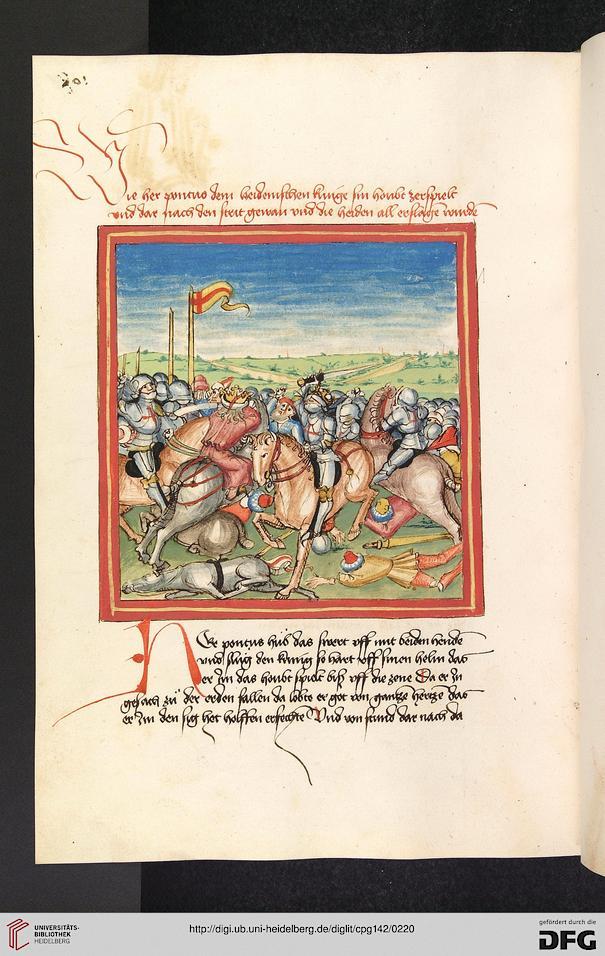 Wie her pontus dem heidenischen kunge sin houbt zerspielt
vnd dar nach den strit gewan vnd die heiden all erslagen wurden
HEr pontus hůb das swert vff mit beiden hende
vnd slůg den kúnig so hart vff sinen helm das
er jm das houbt spielt biß vff die zene Da er jn
gesach zů der erden fallen da lobte er got von gantze hertze das
er jm den sig het holffen erfechte Vnd von stund dar nach da
UNIVERSITÄTS-
BIBLIOTHEK
HEIDELBERG
http://digi.ub.uni-heidelberg.de/diglit/cpg142/0220
gefördert durch die
DFG